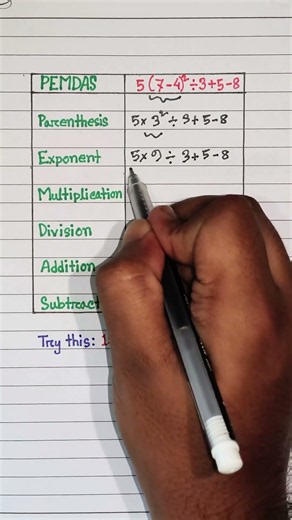 PEMDAS 5(7-4)²÷3+5-8
Parenthesis 5×3²÷3+5-8
Exponent 5×9÷3+5-8
Multiplication
Division
Addition
Subtract
Try this: 1